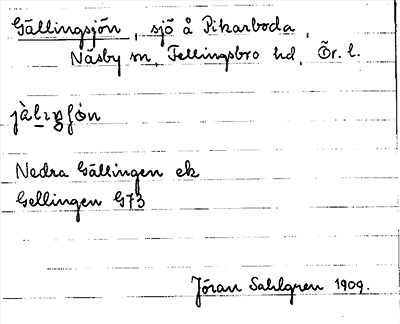 Gällingsjön, sjö å Pikarboda,
Näsby sn, Fellingsbro hd, Ör. l.
jàlıŋʃön
Nedra Gällingen ek
Gellingen G73
Jöran Sahlgren 1909.